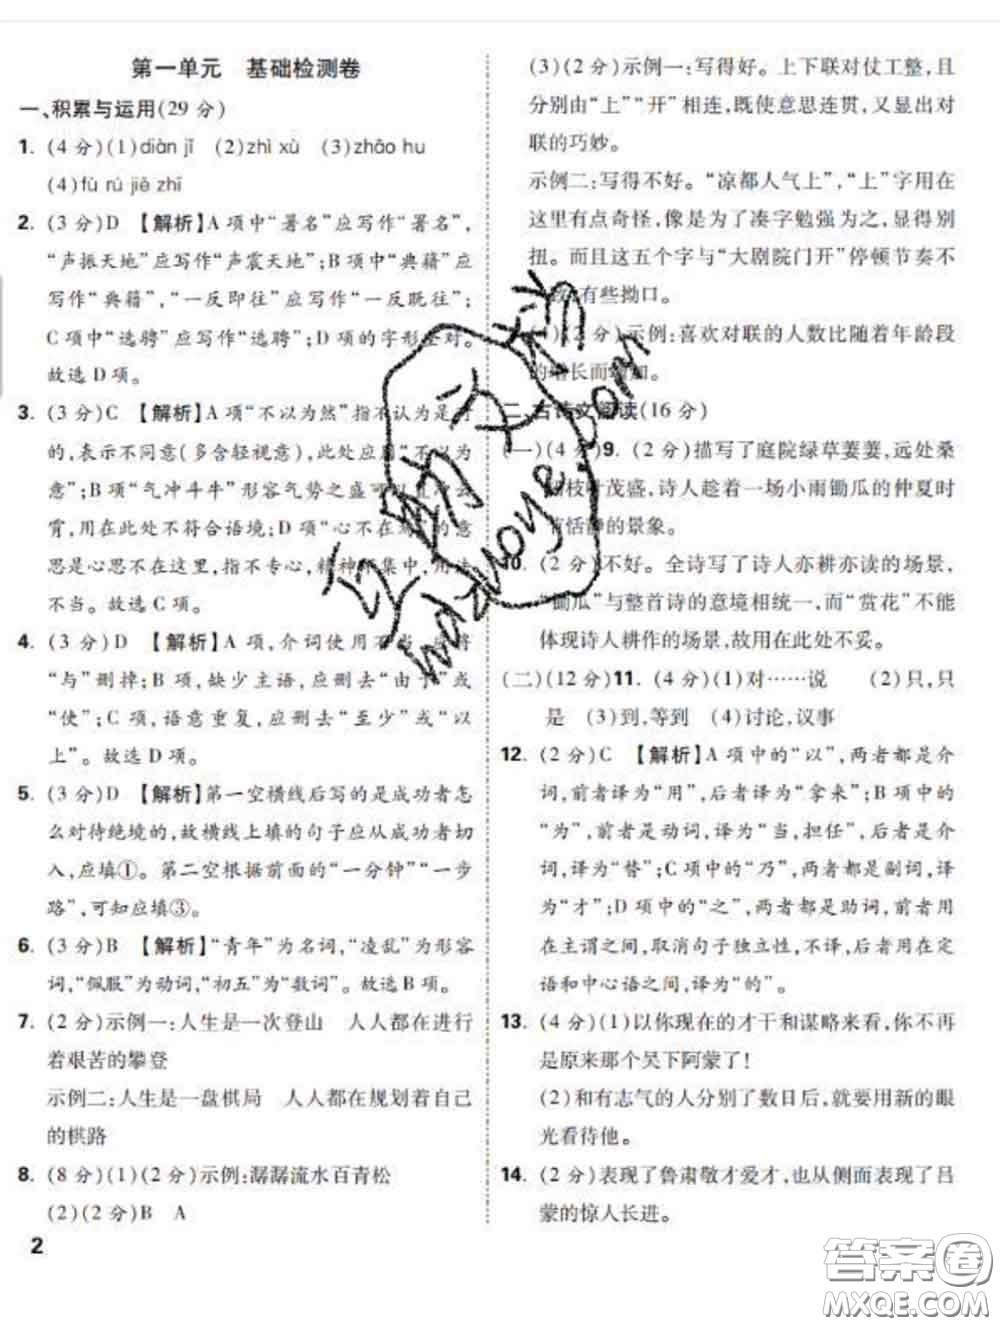 第一单元 基础检测卷
一、积累与运用(29 分)
1. (4 分)(1)diàn jī (2)zhì xù (3)zhāo hu
(4)fù rú jiē zhī
2. (3 分)D 【解析】A 项中“署名”应写作“署名”，
“声振天地”应写作“声震天地”;B 项中“典籍”应
写作“典籍”,“一反即往”应写作“一反既往”;
C 项中“选聘”应写作“选聘”;D 项的字形全对。
故选 D 项。
3. (3 分)C 【解析】A 项“不以为然”指不认为是对
的,表示不同意(多含轻视意),此处应用“不以为
意”;B 项“气冲斗牛”形容气势之盛可以直冲云
霄,用在此处不符合语境;D 项“心不在焉”的意
思是心思不在这里,指不专心,精神不集中,用法
不当。故选 C 项。
4. (3 分)D 【解析】A 项,介词使用不当,应将
“与”删掉;B 项,缺少主语,应删去“由于”或
“使”;C 项,语意重复,应删去“至少”或“以
上”。故选 D 项。
5. (3 分)D 【解析】第一空横线后写的是成功者怎
么对待绝境的,故横线上填的句子应从成功者切
入,应填①。第二空根据前面的“一分钟”“一步
路”,可知应填③。
6. (3 分)B 【解析】“青年”为名词,“凌乱”为形容
词,“佩服”为动词,“初五”为“数词”。故选 B 项。
7. (2 分)示例一:人生是一次登山 人人都在进行
着艰苦的攀登
示例二:人生是一盘棋局 人人都在规划着自己
的棋路
8. (8 分)(1)(2 分)示例:潺潺流水百青松
(2)(2 分)B A
2
(3)(2 分)示例一:写得好。上下联对仗工整,且
分别由“上”“开”相连,既使意思连贯,又显出对
联的巧妙。
示例二:写得不好。“凉都人气上”,“上”字用在
这里有点奇怪,像是为了凑字勉强为之,显得别
扭。而且这五个字与“大剧院门开”停顿节奏不
一致,有些拗口。
(4)(2 分)示例:喜欢对联的人数比随着年龄段
的增长而增加。
二、古诗文阅读(16 分)
(一)(4 分)9. (2 分)描写了庭院绿草萋萋,远处桑
树枝叶茂盛,诗人趁着一场小雨锄瓜的仲夏时
节恬静的景象。
10. (2 分)不好。全诗写了诗人亦耕亦读的场景,
“锄瓜”与整首诗的意境相统一,而“赏花”不能
体现诗人耕作的场景,故用在此处不妥。
(二)(12 分)11. (4 分)(1)对……说 (2)只,只
是 (3)到,等到 (4)讨论,议事
12. (2 分)C 【解析】A 项中的“以”,两者都是介
词,前者译为“用”,后者译为“拿来”;B 项中的
“为”,前者是动词,译为“当,担任”,后者是介
词,译为“替”;C 项中的“乃”,两者都是副词,译
为“才”;D 项中的“之”,两者都是助词,前者用
在主谓之间,取消句子独立性,不译,后者用在定
语和中心语之间,译为“的”。
13. (4 分)(1)以你现在的才干和谋略来看,你不再
是原来那个吴下阿蒙了!
(2)和有志气的人分别了数日后,就要用新的眼
光看待他。
14. (2 分)表现了鲁肃敬才爱才,也从侧面表现了吕
蒙的惊人长进。
答案卷
MXQE.COM